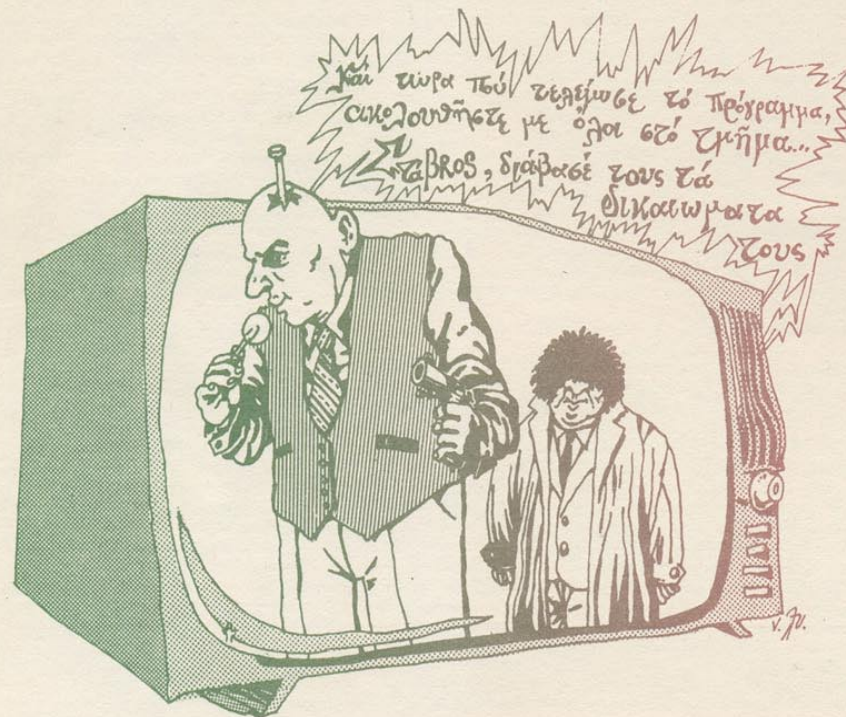 Καὶ τώρα πού τελείωσε τό πρόγραμμα,
ακολουθῆστε με ὅλοι στό τμῆμα...
ΣταBROS, διάβασέ τους τά
δικαιωματα
τους